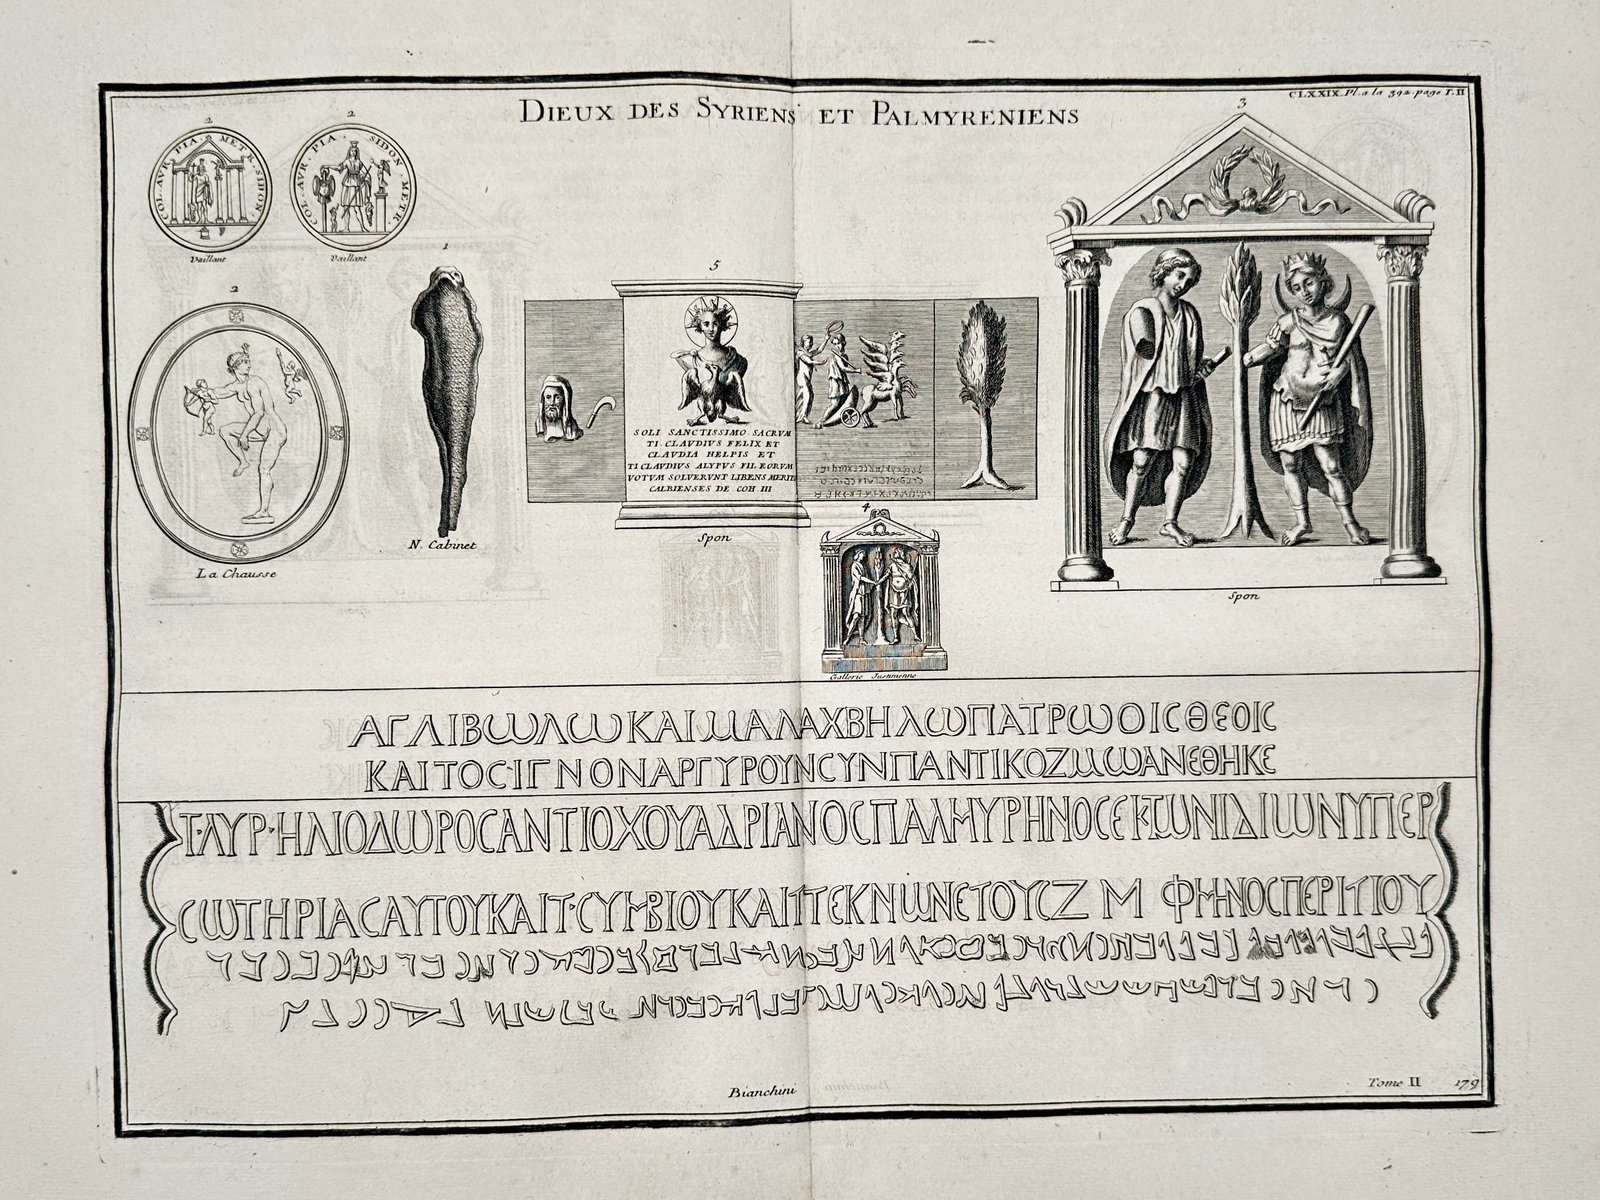 CLXXIX. Pl. a la 392 page T. II
DIEUX DES SYRIENS ET PALMYRENIENS
2
COL. AVR. PIA. METR. SIDON.
Vaillant
2
COL. AVR. PIA. SIDON. METR
Vaillant
2
La Chausse
1
N. Cabinet
5
SOLI SANCTISSIMO SACRVM
TI. CLAVDIVS FELIX ET
CLAVDIA HELPIS ET
TI CLAVDIVS ALYPVS FIL EORVM
VOTVM SOLVERVNT LIBENS MERITO
CALBIENSES DE COH III
Spon
4
Gallerie Justinienne
3
Spon
ΑΓΛΙΒΩΛΩΚΑΙΜΑΛΑΧΒΗΛΩΠΑΤΡΩΟΙϹΘΕΟΙϹ
ΚΑΙΤΟϹΙΓΝΟΝΑΡΓΥΡΟΥΝϹΥΝΠΑΝΤΙΚΟΖΜΩΑΝΕΘΗΚΕ
Τ·ΑΥΡ·ΗΛΙΟΔΩΡΟϹΑΝΤΙΟΧΟΥΑΔΡΙΑΝΟϹΠΑΛΜΥΡΗΝΟϹΕΚΤΩΝΙΔΙΩΝΥΠΕΡ
ϹΩΤΗΡΙΑϹΑΥΤΟΥΚΑΙΤ·ϹΥΜΒΙΟΥΚΑΙΤΤΕΚΝΩΝΕΤΟΥϹΖ Μ ΦΜΗΝΟϹΠΕΡΙΤΙΟΥ
Bianchini
Tome II
179